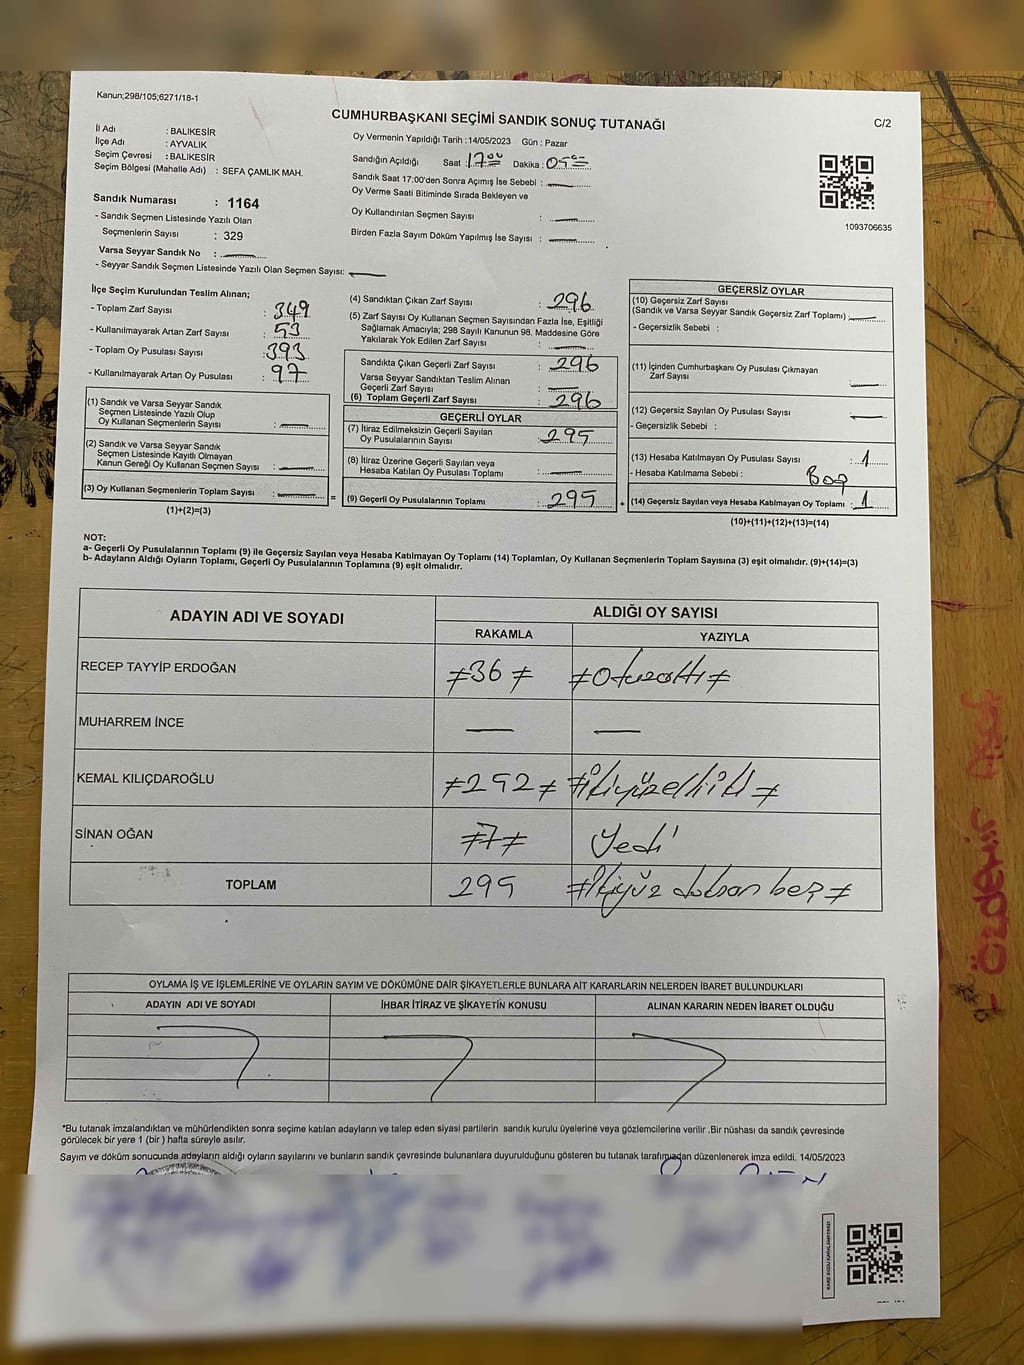 Kanun;298/105;6271/18-1
CUMHURBAŞKANI SEÇİMİ SANDIK SONUÇ TUTANAĞI
C/2
İl Adı : BALIKESİR
İlçe Adı : AYVALIK
Seçim Çevresi : BALIKESİR
Seçim Bölgesi (Mahalle Adı) : SEFA ÇAMLIK MAH.
Oy Vermenin Yapıldığı Tarih :14/05/2023 Gün : Pazar
Sandığın Açıldığı Saat :17:00 Dakika : 05
Sandık Saat 17:00'den Sonra Açımış İse Sebebi :
Oy Verme Saati Bitiminde Sırada Bekleyen ve
Oy Kullandırılan Seçmen Sayısı :
Birden Fazla Sayım Döküm Yapılmış İse Sayısı :
1093706635
Sandık Numarası : 1164
- Sandık Seçmen Listesinde Yazılı Olan
Seçmenlerin Sayısı : 329
Varsa Seyyar Sandık No :
- Seyyar Sandık Seçmen Listesinde Yazılı Olan Seçmen Sayısı:
İlçe Seçim Kurulundan Teslim Alınan;
- Toplam Zarf Sayısı : 349
- Kullanılmayarak Artan Zarf Sayısı : 53
- Toplam Oy Pusulası Sayısı : 393
- Kullanılmayarak Artan Oy Pusulası : 97
(1) Sandık ve Varsa Seyyar Sandık
Seçmen Listesinde Yazılı Olup
Oy Kullanan Seçmenlerin Sayısı :
(2) Sandık ve Varsa Seyyar Sandık
Seçmen Listesinde Kayıtlı Olmayan
Kanun Gereği Oy Kullanan Seçmen Sayısı :
(3) Oy Kullanan Seçmenlerin Toplam Sayısı : =
(1)+(2)=(3)
(4) Sandıktan Çıkan Zarf Sayısı : 296
(5) Zarf Sayısı Oy Kullanan Seçmen Sayısından Fazla İse, Eşitliği
Sağlamak Amacıyla; 298 Sayılı Kanunun 98. Maddesine Göre
Yakılarak Yok Edilen Zarf Sayısı :
Sandıkta Çıkan Geçerli Zarf Sayısı : 296
Varsa Seyyar Sandıktan Teslim Alınan
Geçerli Zarf Sayısı :
(6) Toplam Geçerli Zarf Sayısı : 296
GEÇERLİ OYLAR
(7) İtiraz Edilmeksizin Geçerli Sayılan
Oy Pusulalarının Sayısı : 295
(8) İtiraz Üzerine Geçerli Sayılan veya
Hesaba Katılan Oy Pusulası Toplamı :
(9) Geçerli Oy Pusulalarının Toplamı : 295 +
GEÇERSİZ OYLAR
(10) Geçersiz Zarf Sayısı
(Sandık ve Varsa Seyyar Sandık Geçersiz Zarf Toplamı)
- Geçersizlik Sebebi :
(11) İçinden Cumhurbaşkanı Oy Pusulası Çıkmayan
Zarf Sayısı :
(12) Geçersiz Sayılan Oy Pusulası Sayısı :
- Geçersizlik Sebebi :
(13) Hesaba Katılmayan Oy Pusulası Sayısı : 1
- Hesaba Katılmama Sebebi : Boş
(14) Geçersiz Sayılan veya Hesaba Katılmayan Oy Toplamı : 1
(10)+(11)+(12)+(13)=(14)
NOT:
a- Geçerli Oy Pusulalarının Toplamı (9) ile Geçersiz Sayılan veya Hesaba Katılmayan Oy Toplamı (14) Toplamları, Oy Kullanan Seçmenlerin Toplam Sayısına (3) eşit olmalıdır. (9)+(14)=(3)
b- Adayların Aldığı Oyların Toplamı, Geçerli Oy Pusulalarının Toplamına (9) eşit olmalıdır.
ADAYIN ADI VE SOYADI ALDIĞI OY SAYISI
RAKAMLA YAZIYLA
RECEP TAYYİP ERDOĞAN ≠36≠ ≠Otuzaltı≠
MUHARREM İNCE — —
KEMAL KILIÇDAROĞLU ≠252≠ ≠ikiyüzelliiki≠
SİNAN OĞAN ≠7≠ Yedi
TOPLAM 295 ≠İkiyüz doksan beş≠
OYLAMA İŞ VE İŞLEMLERİNE VE OYLARIN SAYIM VE DÖKÜMÜNE DAİR ŞİKAYETLERLE BUNLARA AİT KARARLARIN NELERDEN İBARET BULUNDUKLARI
ADAYIN ADI VE SOYADI İHBAR İTİRAZ VE ŞİKAYETİN KONUSU ALINAN KARARIN NEDEN İBARET OLDUĞU
*Bu tutanak imzalandıktan ve mühürlendikten sonra seçime katılan adayların ve talep eden siyasi partilerin sandık kurulu üyelerine veya gözlemcilerine verilir .Bir nüshası da sandık çevresinde
görülecek bir yere 1 (bir ) hafta süreyle asılır.
Sayım ve döküm sonucunda adayların aldığı oyların sayılarını ve bunların sandık çevresinde bulunanlara duyurulduğunu gösteren bu tutanak tarafımızdan düzenlenerek imza edildi. 14/05/2023
ÖZDEMİR